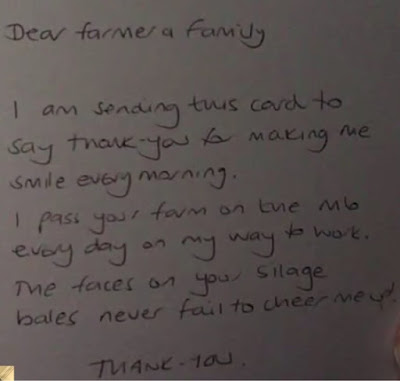 Dear farmer & Family
I am sending this card to
say thank-you for making me
smile every morning.
I pass your farm on the M6
every day on my way to work.
The faces on your silage
bales never fail to cheer me up!
THANK-YOU.